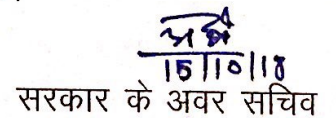 15/10/18
सरकार के अवर सचिव